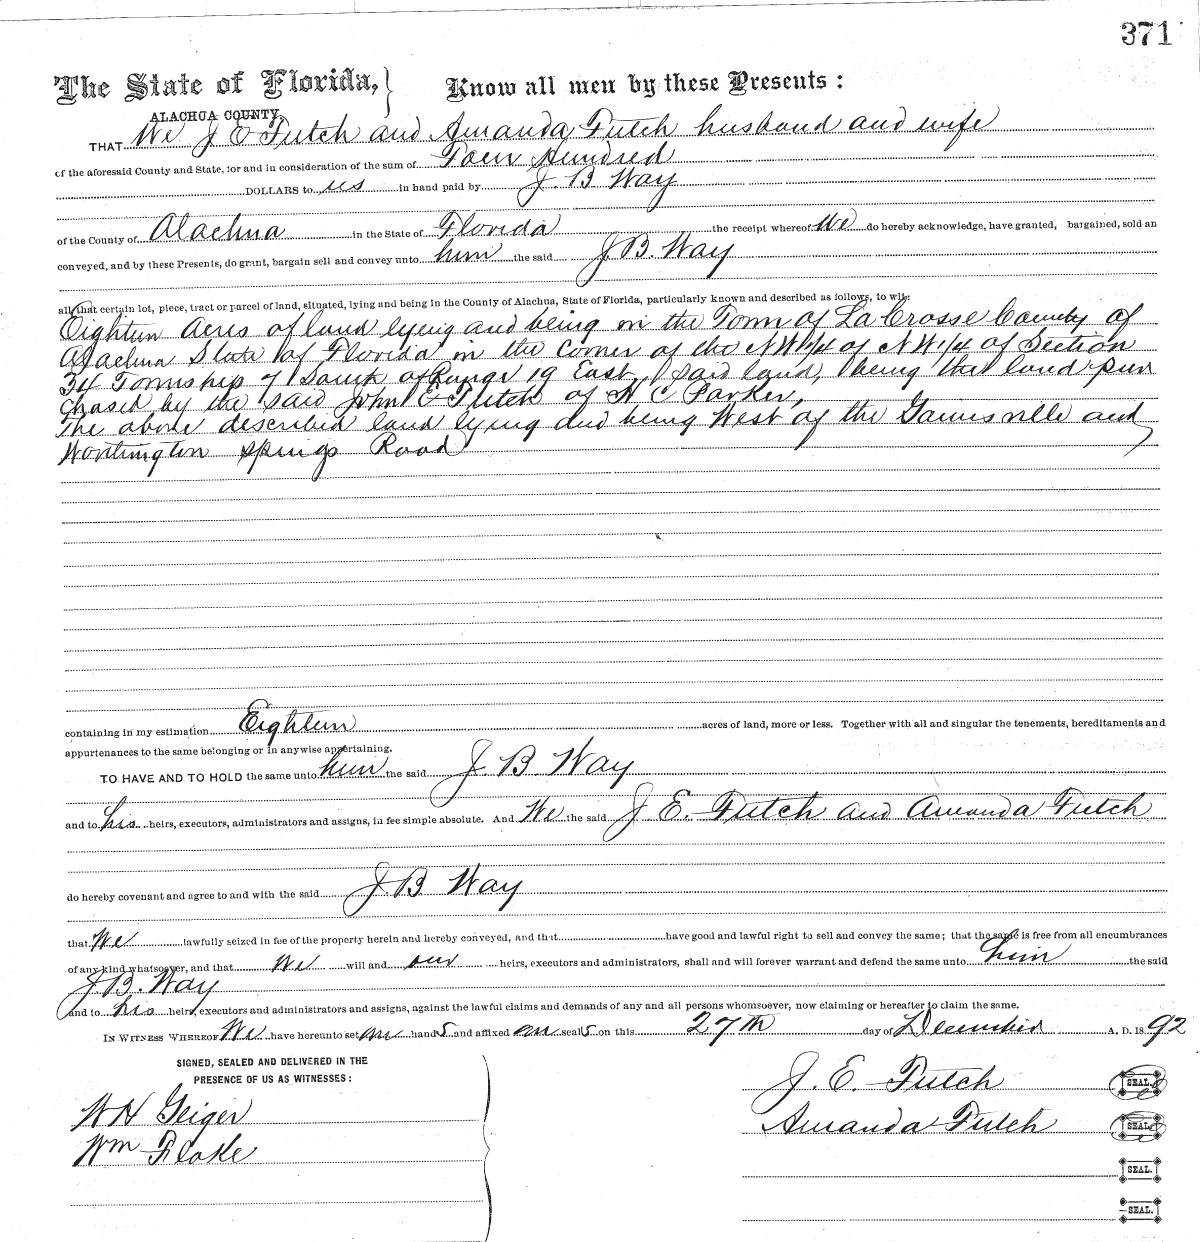 371
The State of Florida, } Know all men by these Presents:
ALACHUA COUNTY.
THAT We J E Futch and Amanda Futch husband and wife
of the aforesaid County and State, for and in consideration of the sum of Four Hundred
DOLLARS to us in hand paid by J. B Way
of the County of Alachua in the State of Florida the receipt whereof We do hereby acknowledge, have granted, bargained, sold an
conveyed, and by these Presents, do grant, bargain sell and convey unto him the said J. B. Way
all that certain lot, piece, tract or parcel of land, situated, lying and being in the County of Alachua, State of Florida, particularly known and described as follows, to wit:
Eighteen Acres of land lying and being in the Town of La Crosse County of
Alachua State of Florida in the Corner of the NW 1/4 of NW 1/4 of Section
34 Township 7 South of Range 19 East, said land, being the land pur
chased by the said John E Futch of C Parker,
The above described land lying and being West of the Gainesville and
Worthington Springs Road
containing in my estimation Eighteen acres of land, more or less. Together with all and singular the tenements, hereditaments and
appurtenances to the same belonging or in anywise appertaining.
TO HAVE AND TO HOLD the same unto him the said J. B Way
and to his heirs, executors, administrators and assigns, in fee simple absolute. And We the said J E. Futch and Amanda Futch
do hereby covenant and agree to and with the said J. B Way
that We lawfully seized in fee of the property herein and hereby conveyed, and that have good and lawful right to sell and convey the same; that the same is free from all encumbrances
of any kind whatsoever, and that We will and our heirs, executors and administrators, shall and will forever warrant and defend the same unto him the said
J. B. Way
and to his heirs, executors and administrators and assigns, against the lawful claims and demands of any and all persons whomsoever, now claiming or hereafter to claim the same.
IN WITNESS WHEREOF We have hereunto set our hand s and affixed our seal s on this 27th day of December A. D. 18 92
SIGNED, SEALED AND DELIVERED IN THE
PRESENCE OF US AS WITNESSES:
J. E. Futch SEAL.
W H Geiger
Amanda Futch SEAL.
Wm
SEAL.
SEAL.